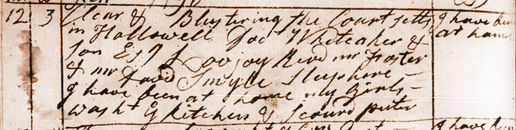 12 3 Clear & Blustering the Court setts I have been
in Hallowell Doct Whiteaker & at home
son Esqr Lovejoy Revd mr Foster
& mr David Smyle sleep here
I have been at home my Girls
washt & kitchen & scourd puter